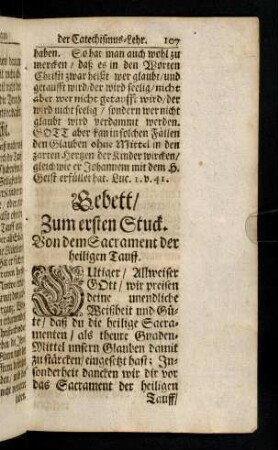 der Catechismus-Lehr. 107
haben. So hat man auch wohl zu
mercken/ daß es in den Worten
Christi zwar heißt wer glaubt/ und
getaufft wird/ der wird seelig/ nicht
aber wer nicht getaufft wird/ der
wird nicht seelig/ sondern wer nicht
glaubt wird verdammt werden.
GOTT aber kan in solchen Fällen
den Glauben ohne Mittel in den
zarten Hertzen der Kinder wircken/
gleich wie er Johannem mit dem H.
Geist erfüllet hat. Luc. 1. v. 41.
Gebett/
Zum ersten Stuck.
Von dem Sacrament der
heiligen Tauff.
GUltiger/ Allweiser
GOtt/ wir preisen
deine unendliche
Weißheit und Gü-
te/ daß du die heilige Sacra-
menten/ als theure Gnaden-
Mittel unsern Glauben damit
zu stärcken/ eingesetzt hast: In-
sonderheit dancken wir dir vor
das Sacrament der heiligen
Tauff/